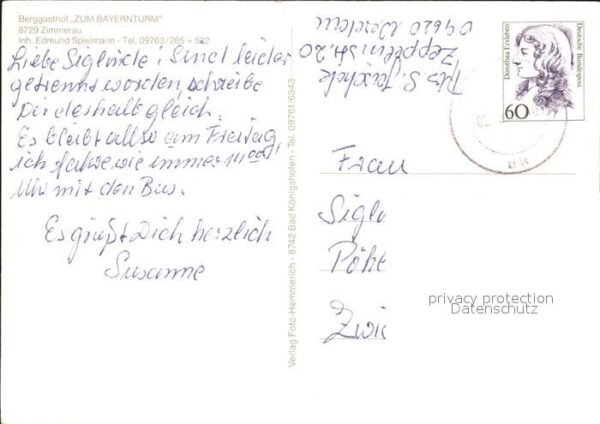 Berggasthof „ZUM BAYERNTURM"
8729 Zimmerau
Inh. Edmund Spielmann - Tel. 09763/265 + 522
Liebe Siglinde! Sind leider
getrennt worden, schreibe
Dir deshalb gleich.
Es bleibt allso am Freitag,
ich fahre wie immer
Uhr mit den Bus.
Es grüßt Dich herzlich
Susanne
Verlag Foto-Hemmerich - 8742 Bad Königshofen - Tel. 09761/6343
Abs. S.
Zeppelinstr. 20
Dorothea Erxleben
Deutsche Bundespost
60
Frau
Sigl
Pöhl
Zwi
privacy protection
Datenschutz